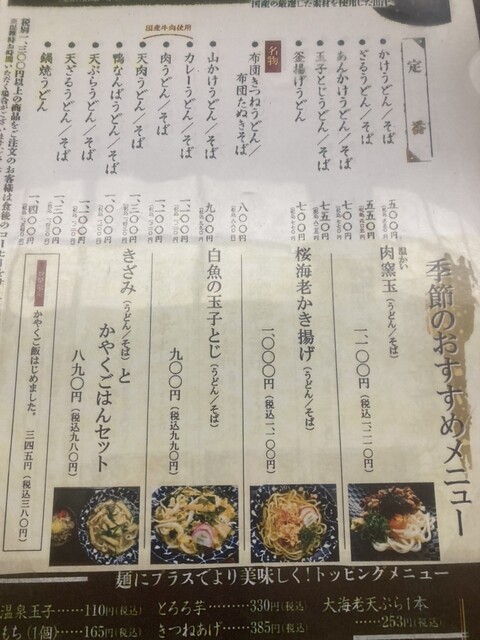 国産の厳選した素材を使用した
定番
かけうどん／そば
五〇〇円
ざるうどん／そば
五五〇円
あんかけうどん／そば
七五〇円
玉子とじうどん／そば
七五〇円
釜揚げうどん
七〇〇円
名物
布団きつねうどん／
布団たぬきそば
八〇〇円
山かけうどん／そば
九〇〇円
カレーうどん／そば
国産牛肉使用
肉うどん／そば
天肉うどん／そば
一、三〇〇円
鴨なんばうどん／そば
天ぷらうどん／そば
天ざるうどん／そば
一、三〇〇円
鍋焼うどん
一、四〇〇円
税別一、三〇〇円以上の商品をご注文のお客様は食後のコー
季節のおすすめメニュー
温かい
肉窯玉（うどん／そば）
一、一〇〇円（税込一、二一〇円）
桜海老かき揚げ（うどん／そば）
一、〇〇〇円（税込一、一〇〇円）
白魚の玉子とじ（うどん／そば）
九〇〇円（税込九九〇円）
きざみ（うどん／そば）と
かやくごはんセット
八九〇円（税込九八〇円）
かやくご飯はじめました。
三四五円（税込三八〇円）
麺にプラスでより美味しく！トッピングメニュー
温泉玉子……110円（税込）
とろろ芋……330円（税込）
大海老天ぷら1本
……253円（税込）
もち（1個）……165円（税込）
きつねあげ……385円（税込）